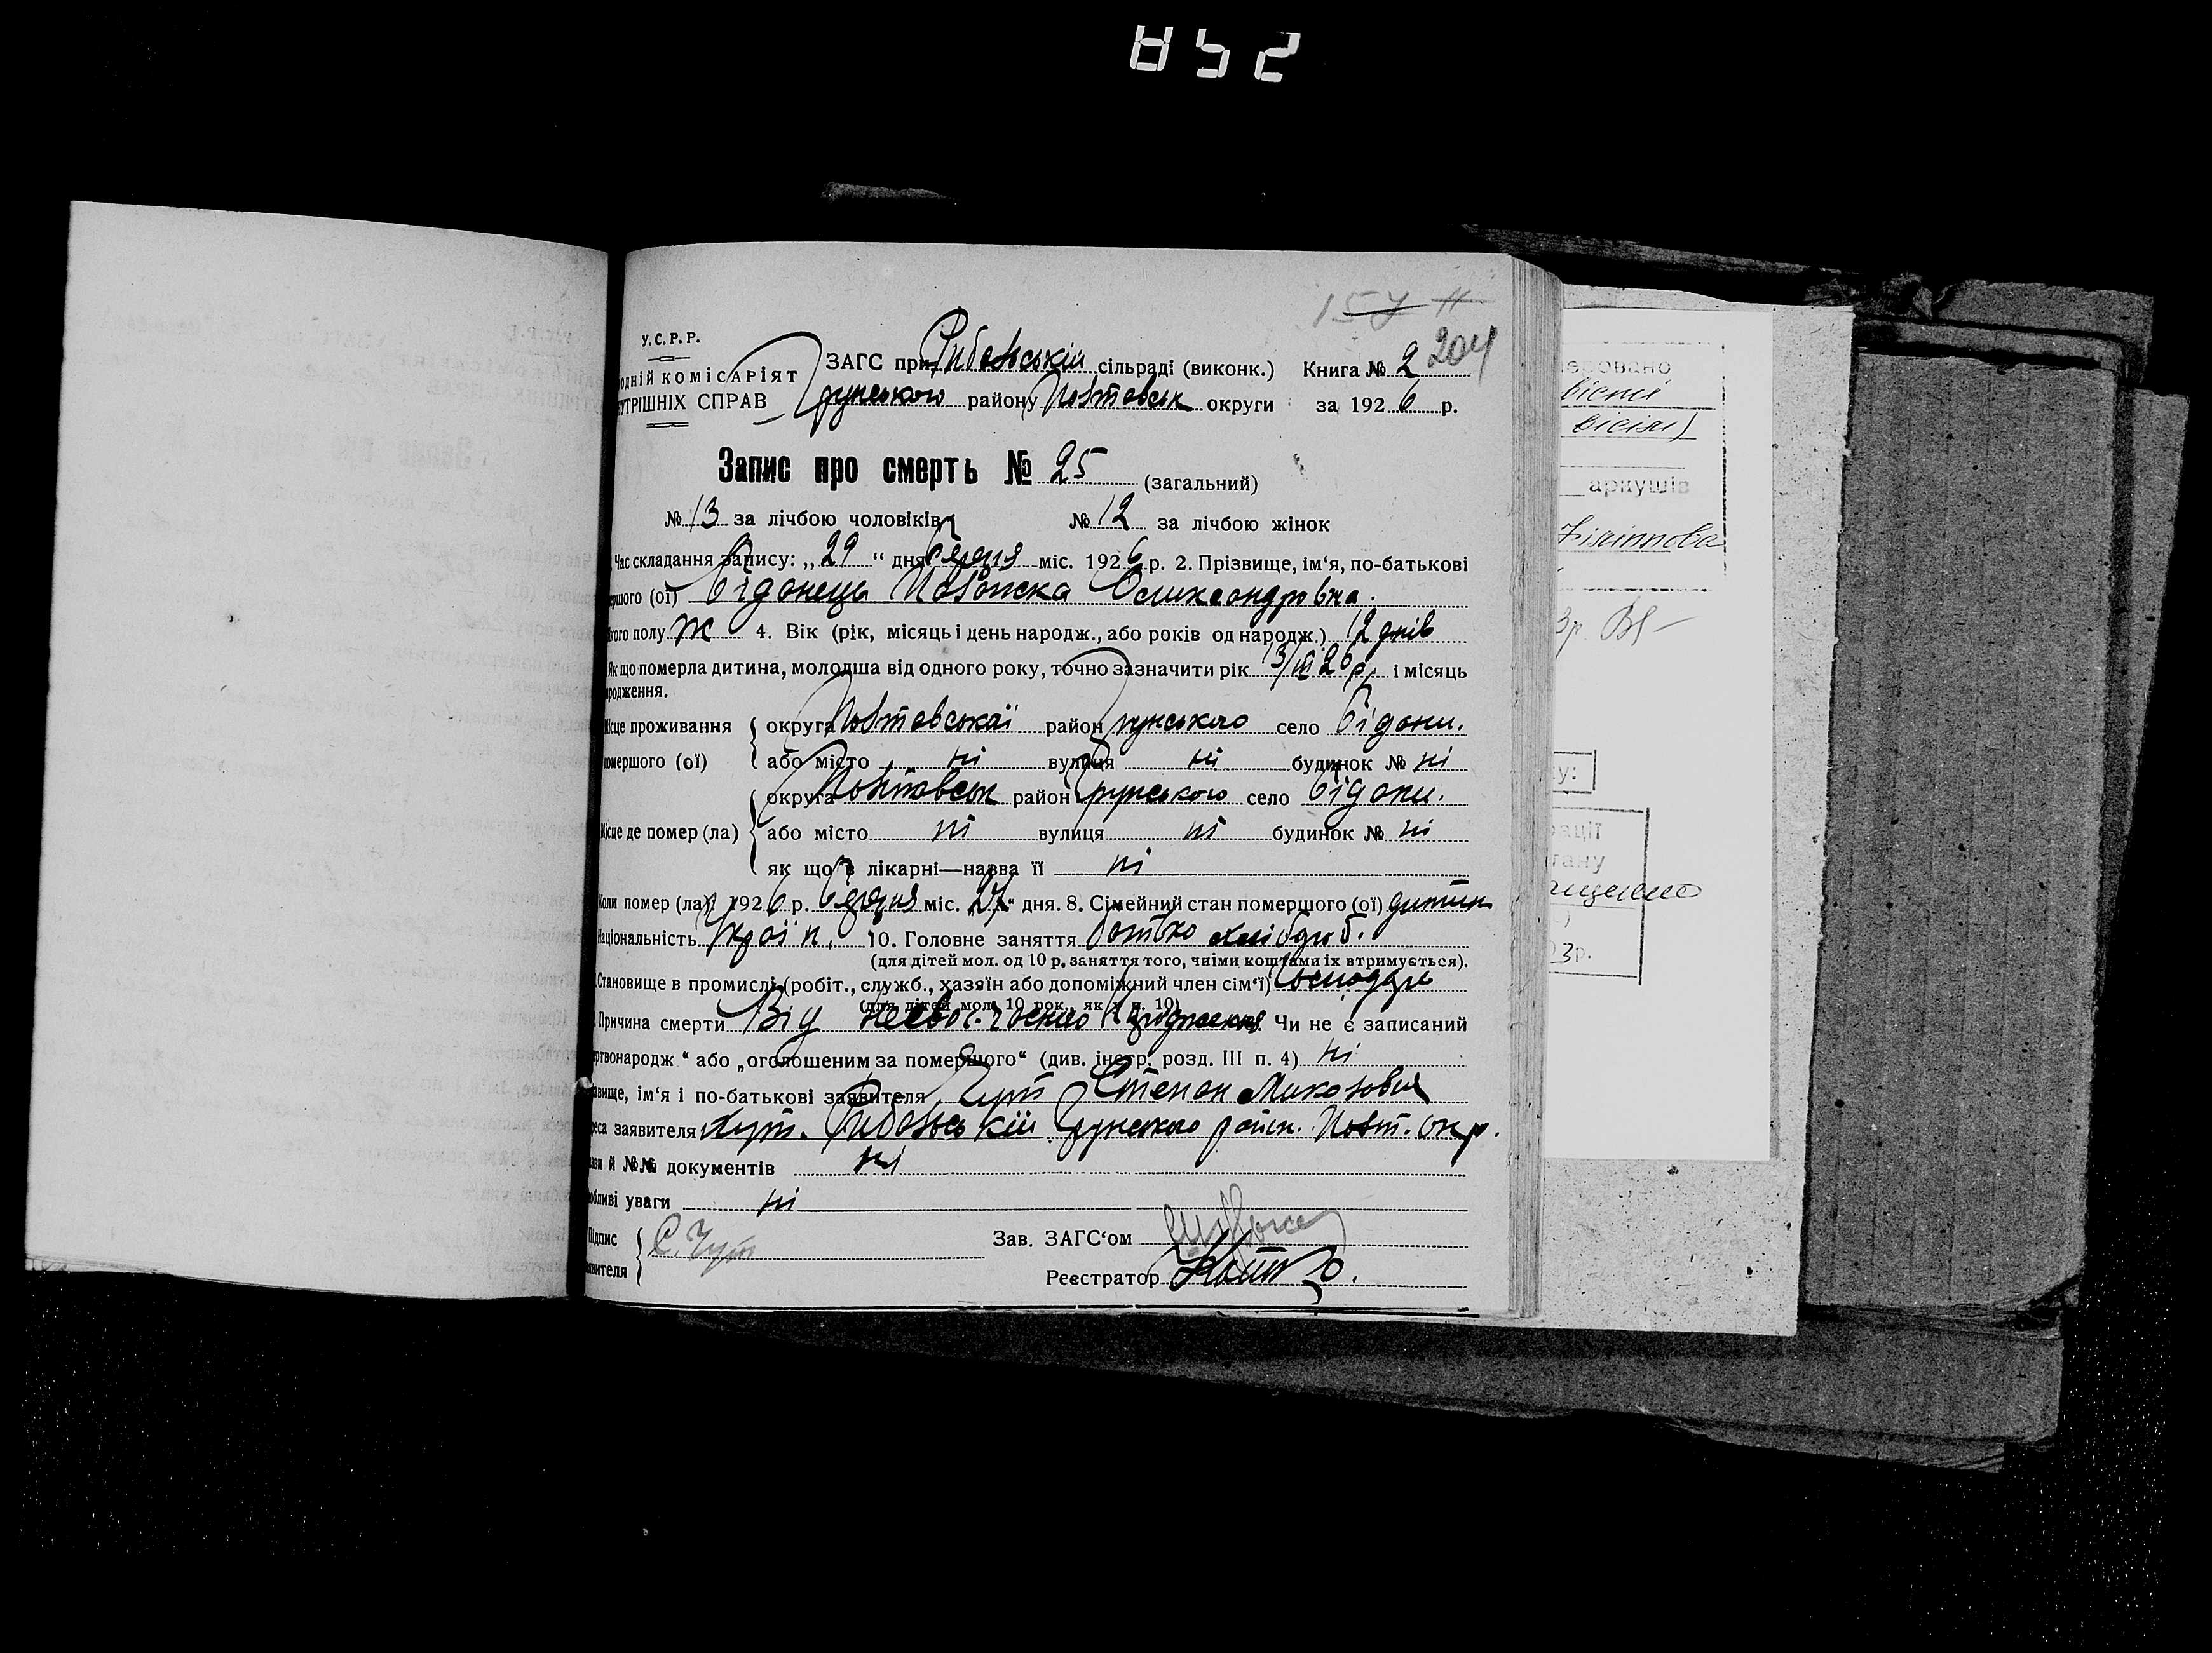 852
157 11
204
У.С.Р.Р.
ЗАГС при Рибальській сільраді (виконк.) Книга № 2
одній КОМІСАРІЯТ
УТРІШНІХ СПРАВ
Грунського району Полтавськ округи за 1926 р.
Запис про смерть № 25 (загальний)
№ 13 за лічбою чоловіків № 12 за лічбою жінок
Час складання запису: „29“ дня міс. 1926 р. 2. Прізвище, ім'я, по-батькові
ршого (ої) Бідонець Олександрівна.
кого полу Ж 4. Вік (рік, місяць і день народж., або років од народж.) 12 днів
Як що померла дитина, молодша від одного року, точно зазначити рік 26 р. і місяць
родження.
Місце проживання округа Полтавської район Грунського село Бідони.
омершого (ої) або місто ні вулиця ні будинок № ні
округа Полтавськ район Грунського село Бідони.
Місце де помер (ла) або місто ні вулиця ні будинок № ні
як що в лікарні—назва її ні
Коли помер (ла): 1926 р. міс. „27“ дня. 8. Сімейний стан помершого (ої) дитин
Національність Україн. 10. Головне заняття батько хлібороб.
(для дітей мол. од 10 р. заняття того, чиіми коштами їх втримується).
Становище в промислі (робіт., служб., хазяїн або допоміжний член сім'ї) Господар
(для дітей мол. 10 рок., як у п. 10)
Причина смерти Від Чи не є записаний
ртвонародж“ або „оголошеним за помершого“ (див. інстр. розд. III п. 4) ні
звище, ім'я і по-батькові заявителя Гут Степан Миколович
реса заявителя Хут. Рибальській Грунського район. Полт. окр.
зви й №№ документів ні
обливі уваги ні
Підпис С. Гут Зав. ЗАГС'ом
явителя
Реєстратор
еровано
аркушів
Філіппова
3р.
у:
ації
тану
3р.